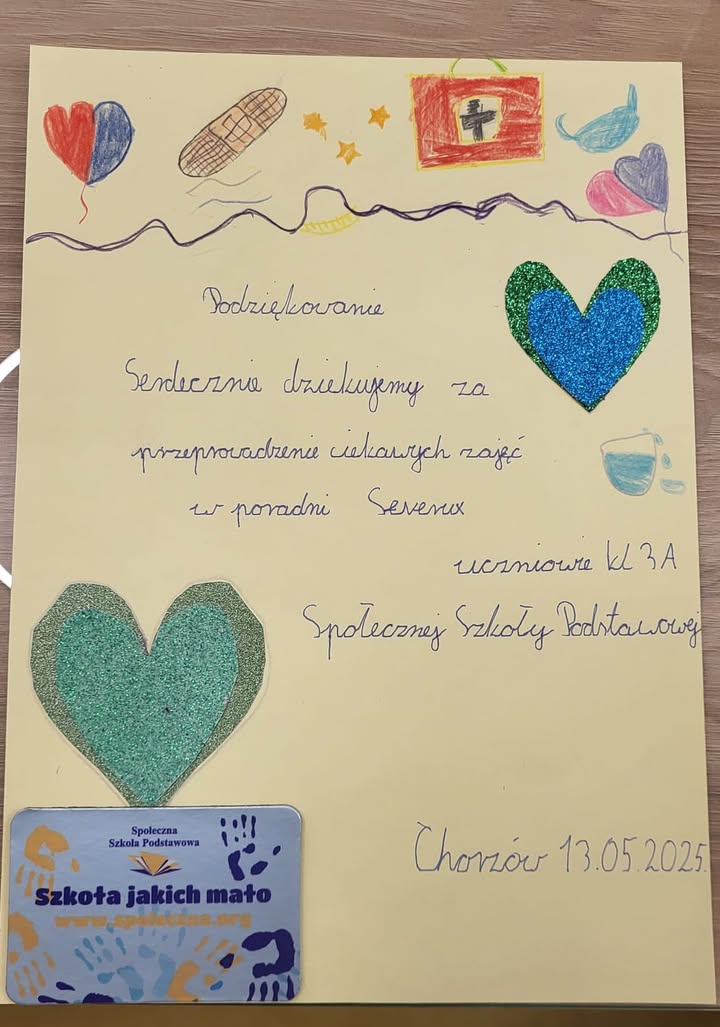 Podziękowanie
Serdecznie dziękujemy za
przeprowadzenie ciekawych zajęć
w poradni Severux
uczniowie kl 3A
Społecznej Szkoły Podstawowej
Społeczna
Szkoła Podstawowa
Szkoła jakich mało
www.spoleczna.org
Chorzów 13.05.2025.